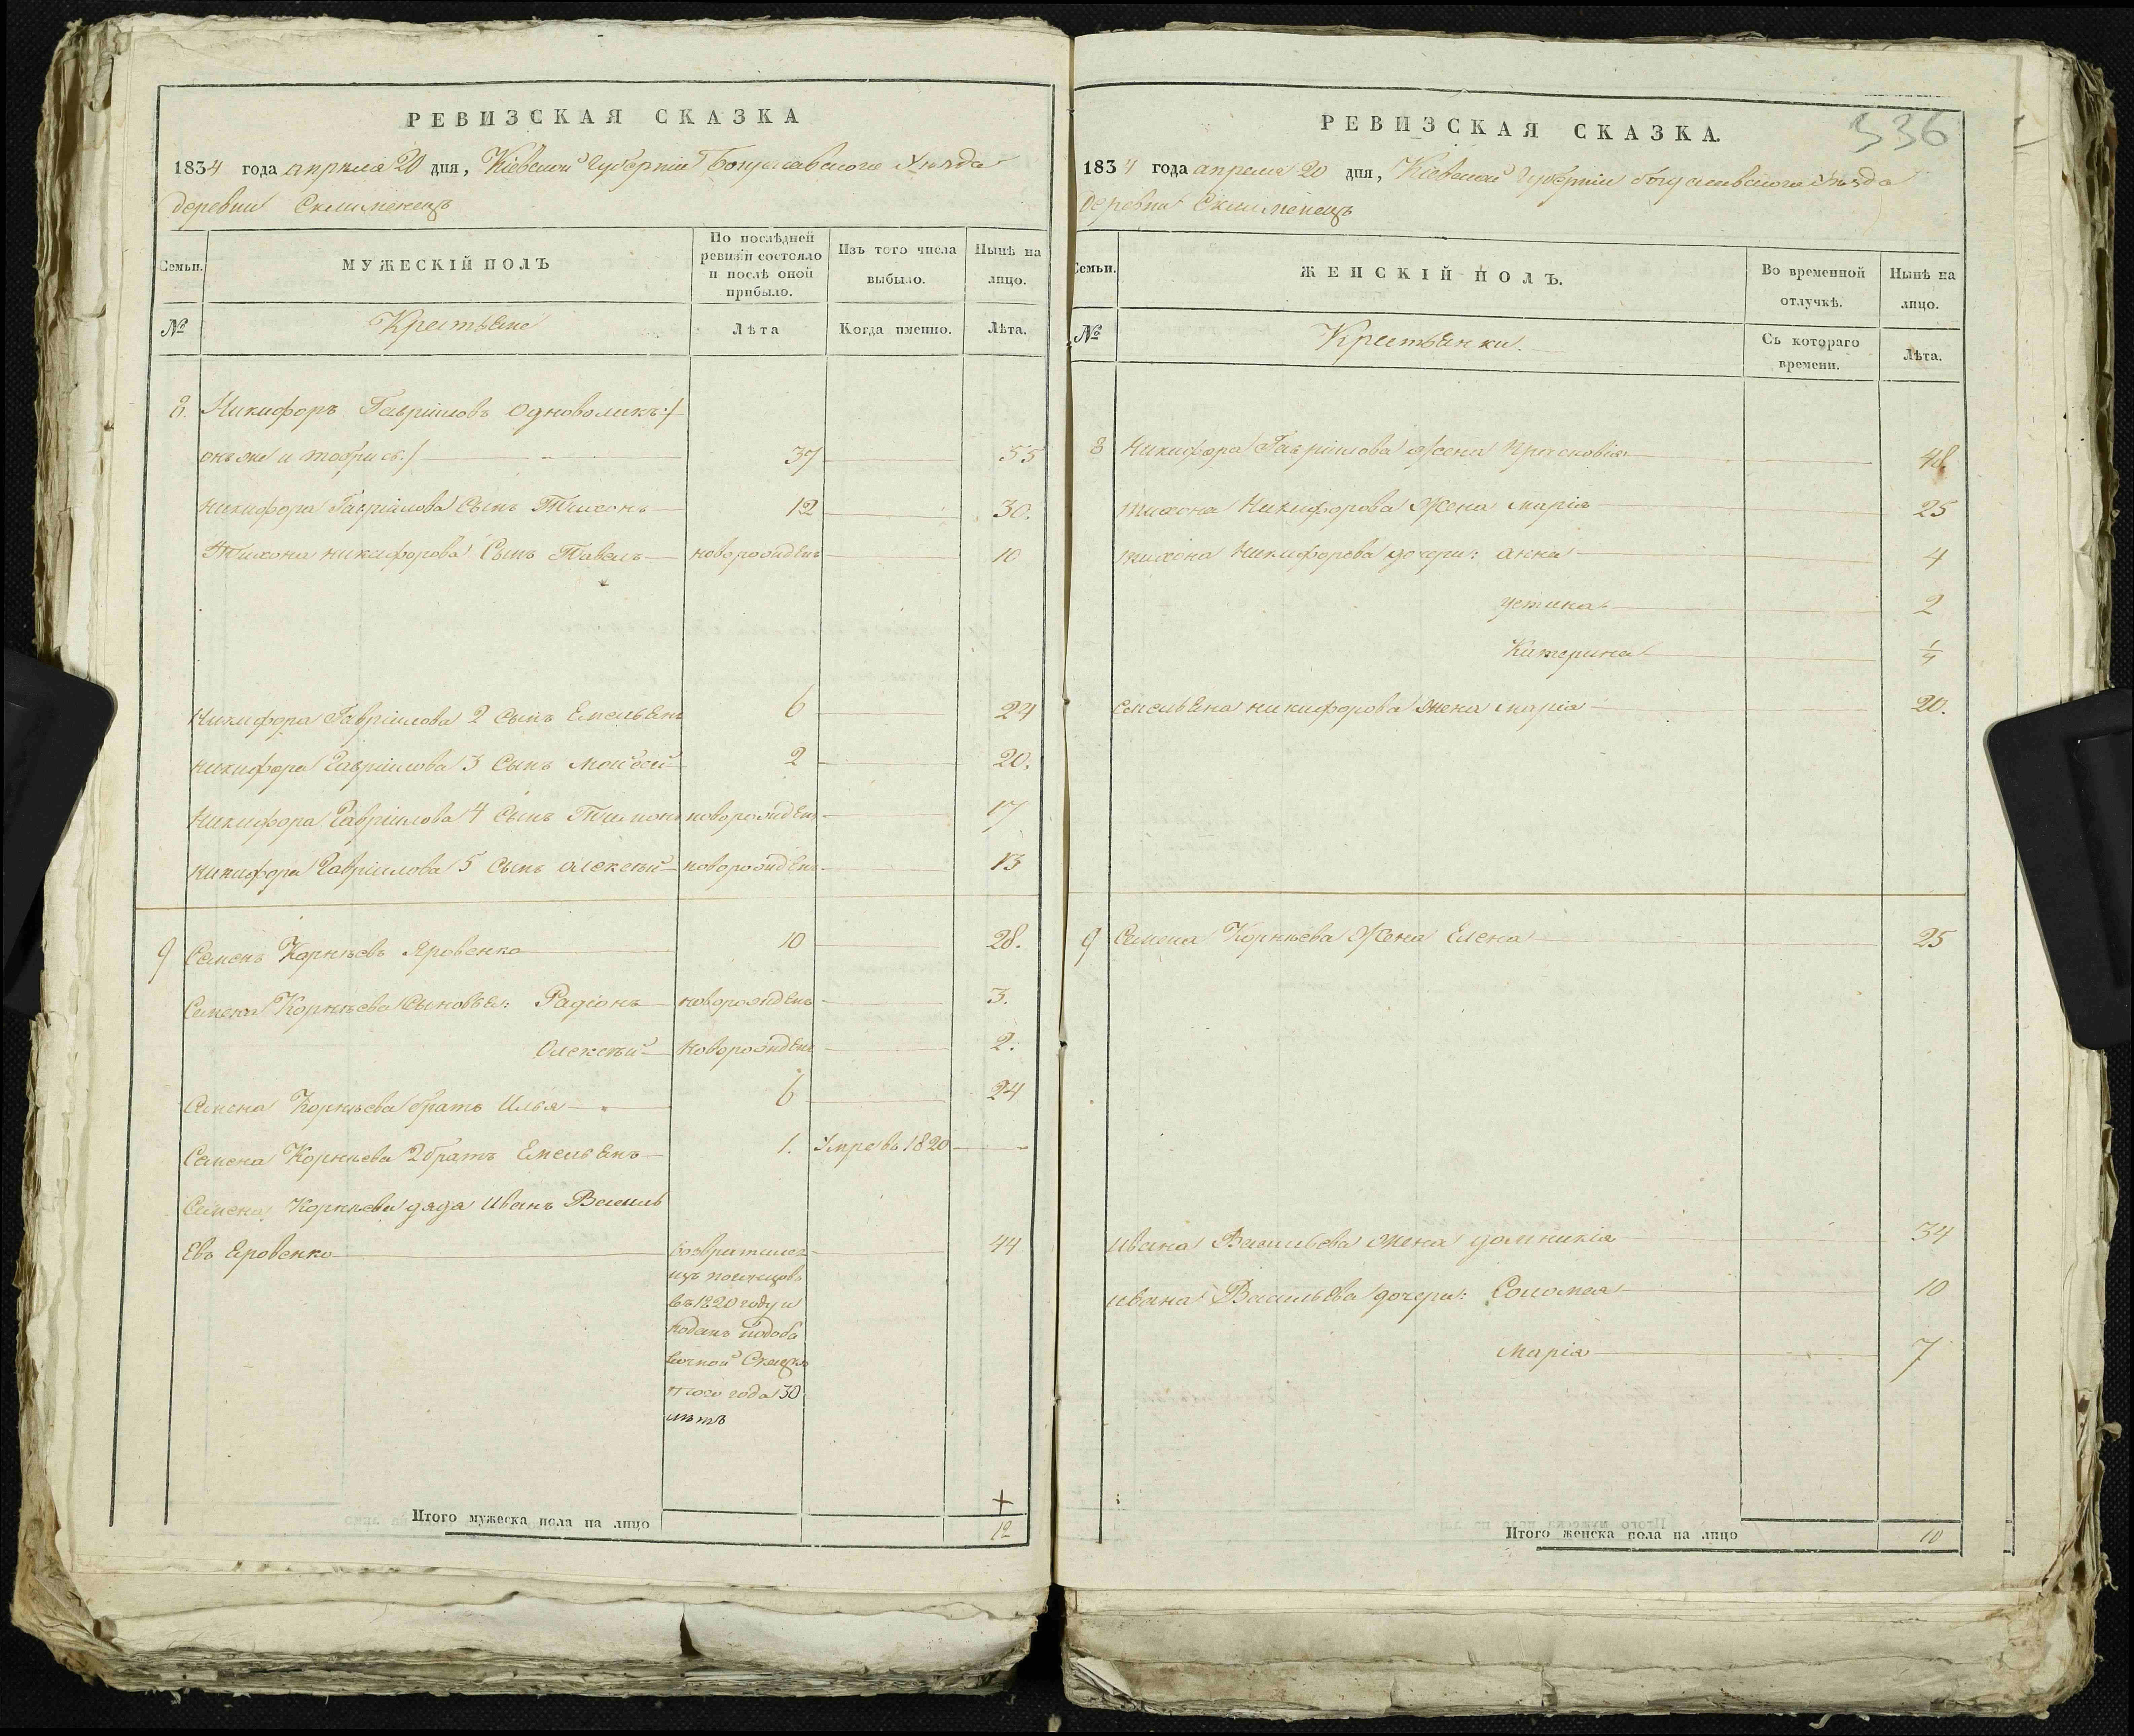 РЕВИЗСКАЯ СКАЗКА
1834 года апреля 20 дня, Кіевской Губерніи Богуславского Уезда
деревни Склименецъ
Семьи.
МУЖЕСКІЙ ПОЛЪ
По послѣдней ревизіи состояло и послѣ оной прибыло.
Изъ того числа выбыло.
Нынѣ на лицо.
№
Крестьяне
Лѣта
Когда именно.
Лѣта.
8. Никифоръ Гавріиловъ Одноволикъ /
онъ же и /
37 55
Никифора Гавріилова Сынъ Тихонъ 12 30.
Тихона Никифорова Сынъ Павелъ новорожденъ 10
Никифора Гавріилова 2 сынъ Емельянъ 6 24
Никифора Гавріилова 3 Сынъ Мойсей 2 20.
Никифора Гавріилова 4 Сынъ Тимонъ новорожденъ 17
Никифора Гавріилова 5 сынъ Алексѣй новорожденъ 13
9 Семенъ Корнѣевъ Яровенко 10 28.
Семена Корнѣева Сыновья: Радіонъ новорожденъ 3.
Олексѣй новорожденъ 2.
Семена Корнѣева братъ Илья 6 24
Семена Корнѣева 2 братъ Емельянъ 1. Умре въ 1820
Семена Корнѣева дядя Иванъ Василь
евъ Яровенко возвратился 44
изъ
въ 1820 году и
поданъ по доба
вочной Сказкѣ
того года 30
лѣтъ
+
Итого мужеска пола на лицо 12
336
РЕВИЗСКАЯ СКАЗКА.
1834 года апреля 20 дня, Кіевской Губерніи Богуславского Уезда
деревни Склименецъ
Семьи.
ЖЕНСКІЙ ПОЛЪ.
Во временной отлучкѣ.
Нынѣ на лицо.
№
Крестьянки.
Съ котораго времени.
Лѣта.
8 Никифора Гавріилова Жена Прасковія 48
Тихона Никифорова Жена Марія 25
Тихона Никифорова дочери: Анна 4
Устина 2
Катерина 1/4
Емельяна Никифорова жена Марія 20.
9 Семена Корнѣева Жена Елена 25
Ивана Васильева жена Домникія 34
Ивана Васильева дочери: Соломея 10
Марія 7
Итого женска пола на лицо 10